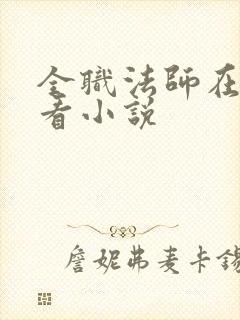 全職法師在
看小説
詹妮弗麦卡錫